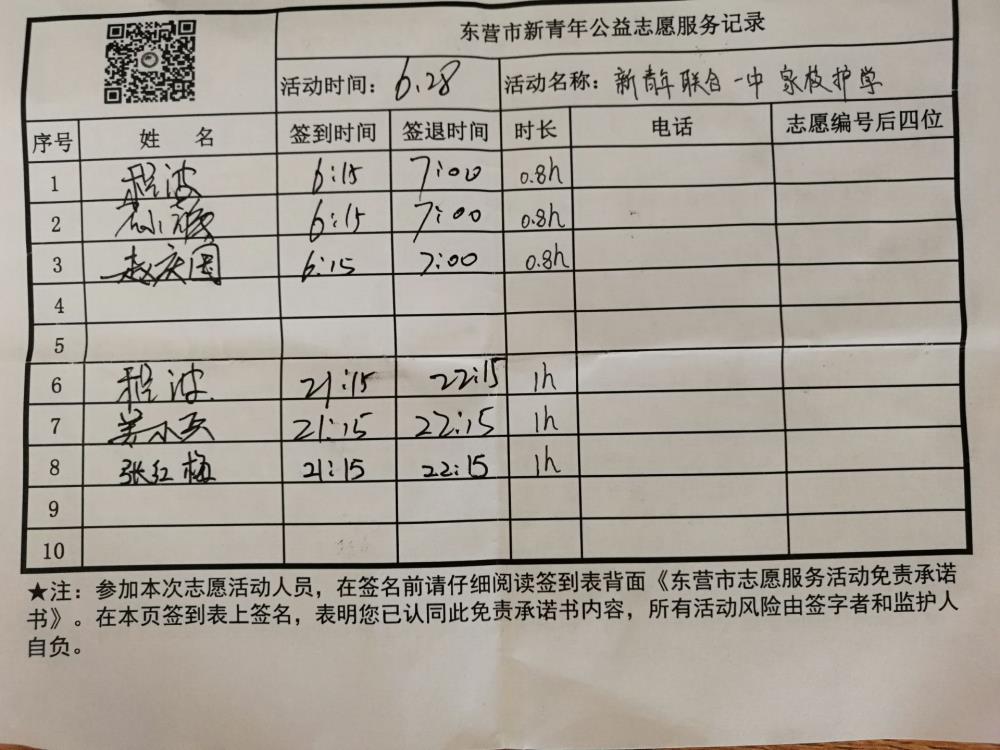 东营市新青年公益志愿服务记录
活动时间: 6.28 活动名称: 新青年联合一中家校护学
序号 姓 名 签到时间 签退时间 时长 电话 志愿编号后四位
1 程波 6:15 7:00 0.8h
2 6:15 7:00 0.8h
3 赵庆国 6:15 7:00 0.8h
4
5
6 程波 21:15 22:15 1h
7 21:15 22:15 1h
8 张红梅 21:15 22:15 1h
9
10
★注：参加本次志愿活动人员，在签名前请仔细阅读签到表背面《东营市志愿服务活动免责承诺
书》。在本页签到表上签名，表明您已认同此免责承诺书内容，所有活动风险由签字者和监护人
自负。